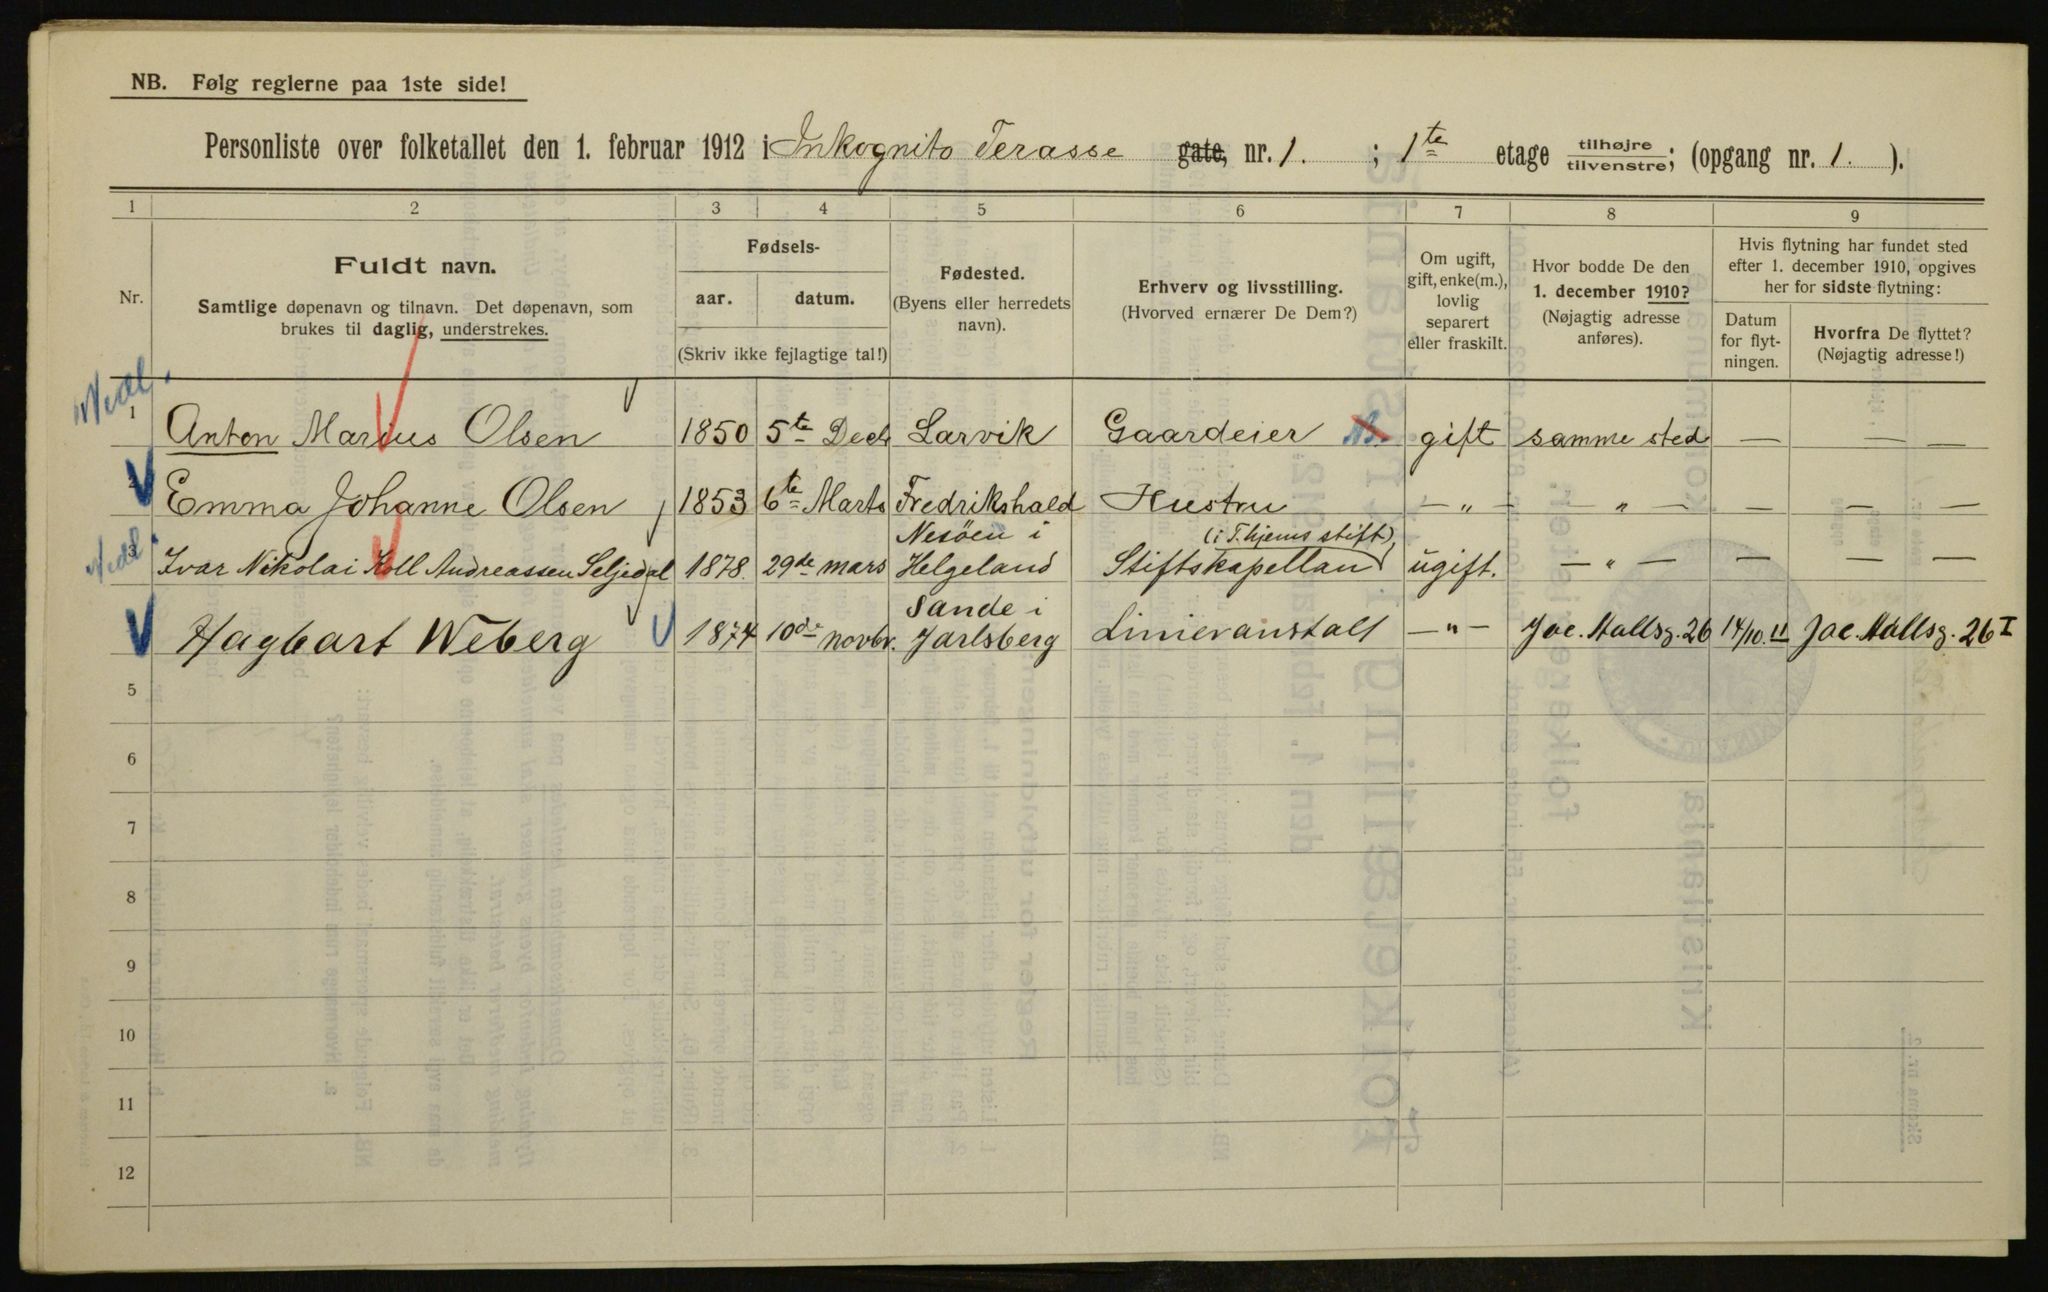 NB. Følg reglerne paa 1ste side!
Personliste over folketallet den 1. februar 1912 i Inkognito Terasse gate, nr. 1. ; 1te etage tilhøjre tilvenstre; (opgang nr. 1. ).
1 2 3 4 5 6 7 8 9
Nr.
Fuldt navn.
Samtlige døpenavn og tilnavn. Det døpenavn, som
brukes til daglig, understrekes.
Fødsels-
aar. datum.
(Skriv ikke fejlagtige tal!)
Fødested.
(Byens eller herredets
navn).
Erhverv og livsstilling.
(Hvorved ernærer De Dem?)
Om ugift,
gift, enke(m.),
lovlig
separert
eller fraskilt.
Hvor bodde De den
1. december 1910?
(Nøjagtig adresse
anføres).
Hvis flytning har fundet sted
efter 1. december 1910, opgives
her for sidste flytning:
Datum
for flyt-
ningen.
Hvorfra De flyttet?
(Nøjagtig adresse!)
1 Anton Marius Olsen 1850 5te Decb Larvik Gaardeier gift samme sted — — —
2 Emma Johanne Olsen 1853 6te Marts Fredrikshald Hustru — " — — " — — — —
3 Ivar Nikolai Koll Andreassen Seljedal 1878. 29de mars Nesöen i Helgeland Stiftskapellan (i T.hjems stift), ugift. — " — — — —
Hagbart Weberg 1874 10de novbr. Sande i Jarlsberg Linieranstalt — " — Jac. Aallsg. 26 14/10. 11 Jac. Aallsg. 26 I
5
6
7
8
9
10
11
12